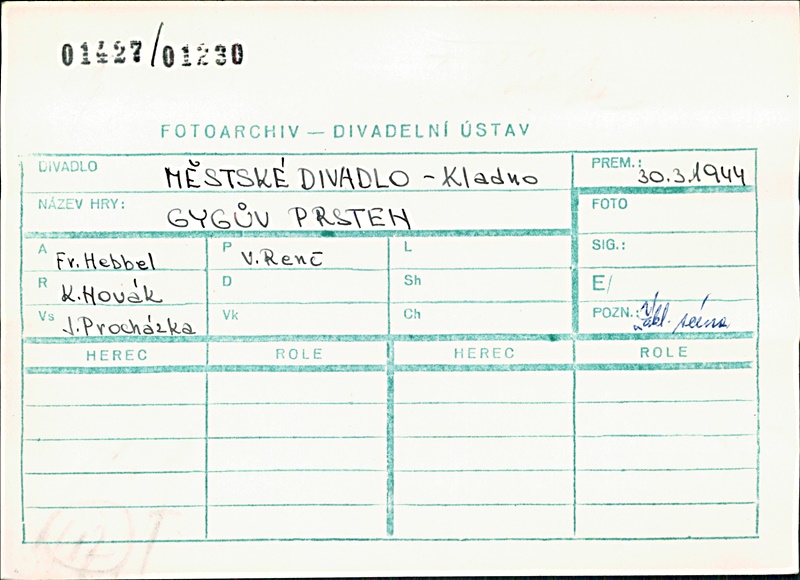 01427/01230
FOTOARCHIV — DIVADELNÍ ÚSTAV
DIVADLO MĚSTSKÉ DIVADLO - Kladno PREM.: 30.3.1944
NÁZEV HRY: GYGŮV PRSTEN FOTO
A Fr. Hebbel P V. Renč L SIG.:
R K. Novák D Sh E/
Vs J. Procházka Vk Ch POZN.: zákl. scéna
HEREC ROLE HEREC ROLE